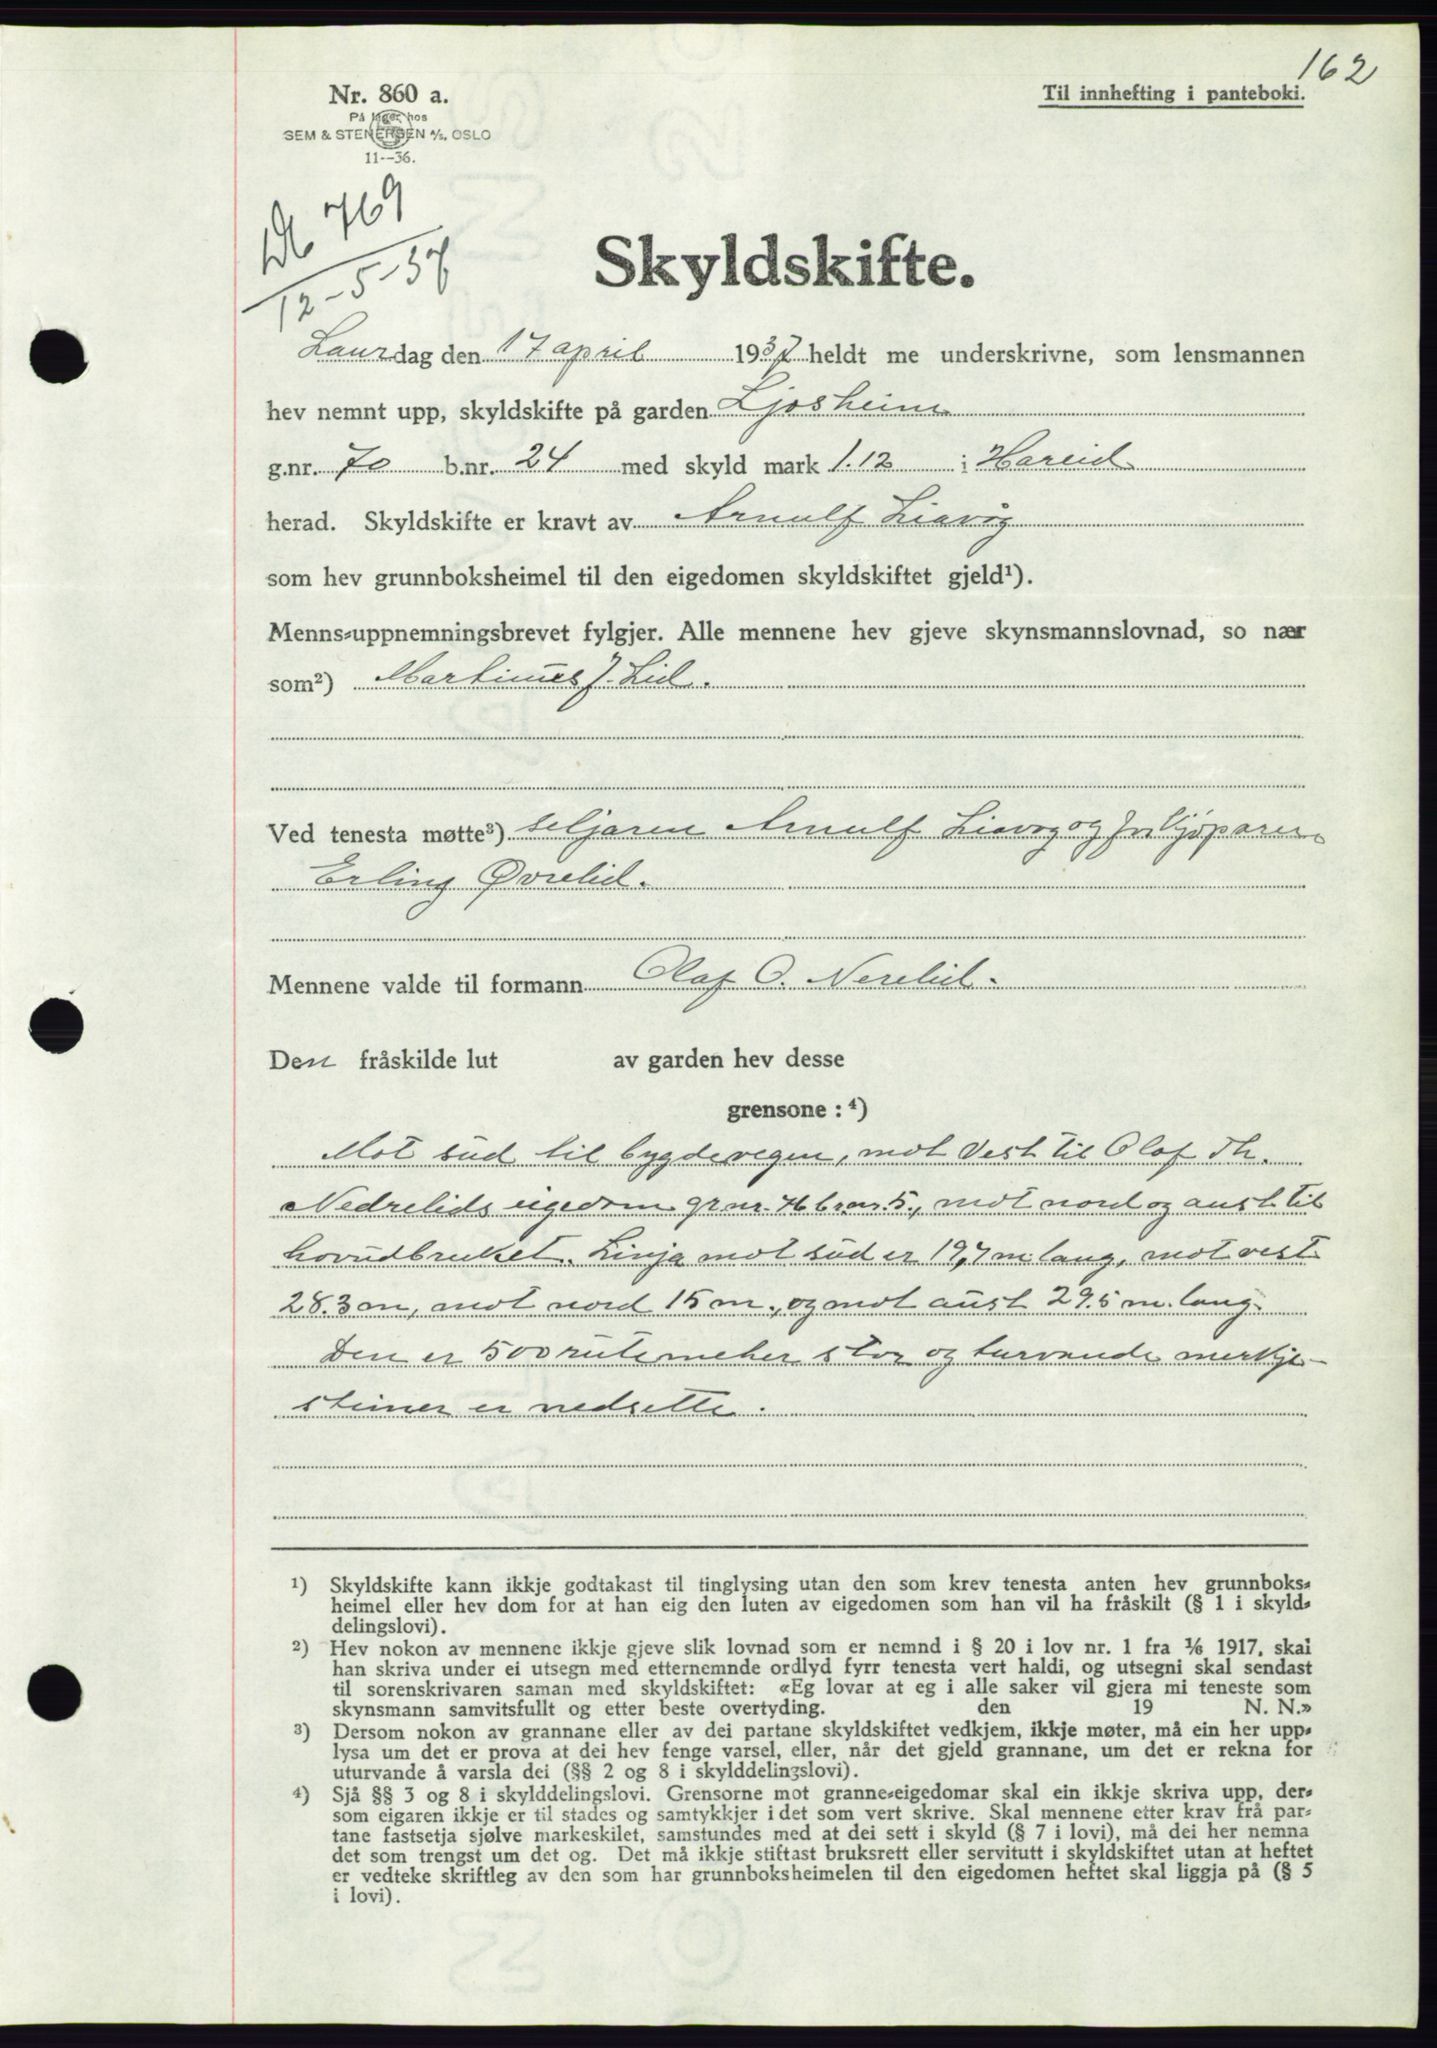 162
Nr. 860 a.
På lager hos
SEM & STENERSEN A/S, OSLO
11--36.
Til innhefting i panteboki.
Db 769
12-5-37
Skyldskifte.
Laurdag den 17 april 1937 heldt me underskrivne, som lensmannen
hev nemnt upp, skyldskifte på garden Ljosheim
g.nr. 70 b.nr. 24 med skyld mark 1.12 i Hareid
herad. Skyldskifte er kravt av Arnulf Liavåg
som hev grunnboksheimel til den eigedomen skyldskiftet gjeld¹).
Menns-uppnemningsbrevet fylgjer. Alle mennene hev gjeve skynsmannslovnad, so nær
som²) Martinus J. Lid.
Ved tenesta møtte³) seljaren Arnulf Liavog og kjøparen
Erling Øvrelid.
Mennene valde til formann Olaf O. Nerelid.
Den fråskilde lut av garden hev desse
grensone: ⁴)
Mot sud til bygdevegen, mot vest til Olaf Th.
Nedrelids eigedom gr.nr. 76 br.nr. 5., mot nord og aust til
hovudbruket. Linja mot sud er 19,7 m. lang, mot vest
28.3 m, mot nord 15 m., og mot aust 29.5 m. lang.
Den er 500 rutemeter stor og turvande merkje-
steiner er nedsette.
¹) Skyldskifte kann ikkje godtakast til tinglysing utan den som krev tenesta anten hev grunnboks-
heimel eller hev dom for at han eig den luten av eigedomen som han vil ha fråskilt (§ 1 i skyld-
delingslovi).
²) Hev nokon av mennene ikkje gjeve slik lovnad som er nemnd i § 20 i lov nr. 1 fra 1/6 1917, skal
han skriva under ei utsegn med etternemnde ordlyd fyrr tenesta vert haldi, og utsegni skal sendast
til sorenskrivaren saman med skyldskiftet: «Eg lovar at eg i alle saker vil gjera mi teneste som
skynsmann samvitsfullt og etter beste overtyding. den 19 N. N.»
³) Dersom nokon av grannane eller av dei partane skyldskiftet vedkjem, ikkje møter, må ein her upp-
lysa um det er prova at dei hev fenge varsel, eller, når det gjeld grannane, um det er rekna for
uturvande å varsla dei (§§ 2 og 8 i skylddelingslovi).
⁴) Sjå §§ 3 og 8 i skylddelingslovi. Grensorne mot granne-eigedomar skal ein ikkje skriva upp, der-
som eigaren ikkje er til stades og samtykkjer i det som vert skrive. Skal mennene etter krav frå par-
tane fastsetja sjølve markeskilet, samstundes med at dei sett i skyld (§ 7 i lovi), må dei her nemna
det som trengst um det og. Det må ikkje stiftast bruksrett eller servitutt i skyldskiftet utan at heftet
er vedteke skriftleg av den som har grunnboksheimelen til den eigedomen heftet skal liggja på (§ 5
i lovi).